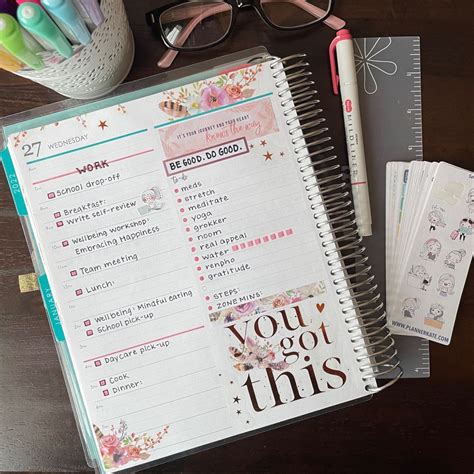 27 WEDNESDAY
WORK
School drop-off
Breakfast:
Write self-review
Wellbeing workshop:
Embracing Happiness
Team meeting
Lunch:
Wellbeing: Mindful earing
School pick-up
Daycare pick-up
Cook
Dinner:
IT'S YOUR JOURNEY AND YOUR HEART
knows the way
BE GOOD. DO GOOD.
to-do
meds
stretch
meditate
yoga
grokker
noom
real appeal
water
renpho
gratitude
STEPS:
ZONE MINS:
you
got
this
JANUARY
MILDLINER
WWW.PLANNERKATE.COM
you
got this